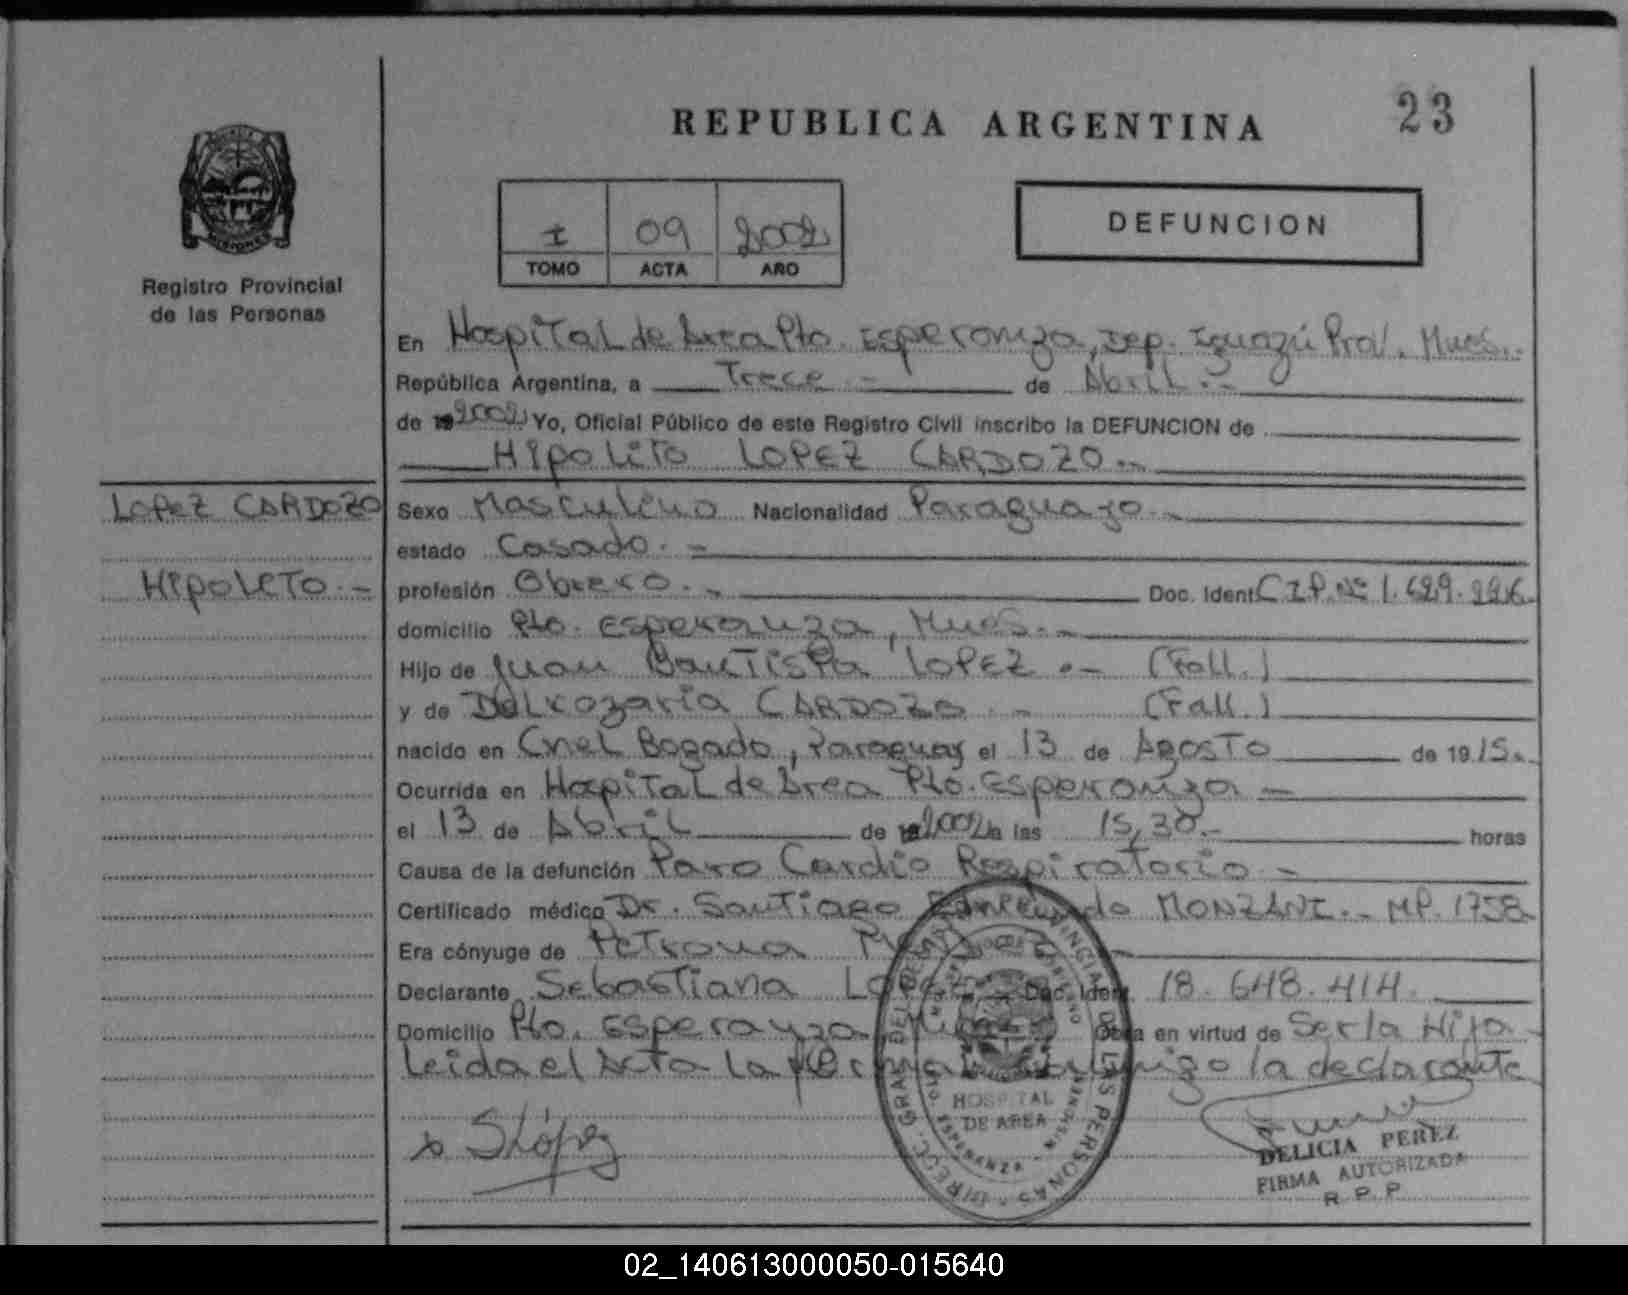 23
REPUBLICA ARGENTINA
MISIONES
Registro Provincial
de las Personas
I 09 2002
TOMO ACTA AÑO
DEFUNCION
En Hospital de Area Pto. Esperanza, Dep. Iguazú Prov. Mnes.-
República Argentina, a Trece.- de Abril.-
de 19 2002 Yo, Oficial Público de este Registro Civil inscribo la DEFUNCION de
Hipolito LOPEZ CARDOZO.-
LOPEZ CARDOZO
Hipolito.-
Sexo Masculino Nacionalidad Paraguayo.-
estado Casado.-
profesión Obrero.- Doc. Ident. C.I.P. Nº 1.629.226.
domicilio Pto. Esperanza, Mnes.-
Hijo de Juan Bautista LOPEZ.- (Fall.)
y de CARDOZO.- (Fall.)
nacido en Cnel Bogado, Paraguay el 13 de Agosto de 19 15.-
Ocurrida en Hospital de Area Pto. Esperanza.-
el 13 de Abril de 19 2002 a las 15,30.- horas
Causa de la defunción Paro Cardio Respiratorio.-
Certificado médico Dr. Santiago MONZANI.- MP. 1758
Era cónyuge de Petrona
Declarante Sebastiana Lopez Doc. Ident. 18.648.414.
Domicilio Pto. Esperanza. Mnes. Obra en virtud de Ser la Hija.-
Leida el Acta la firma conmigo la declarante
x SLópez
DIREC. GRAL DEL REGISTRO PROVINCIAL DE LAS PERSONAS
HOSPITAL
DE AREA
PTO. ESPERANZA - MISIONES
DELICIA PEREZ
FIRMA AUTORIZADA
R. P. P.
02_140613000050-015640